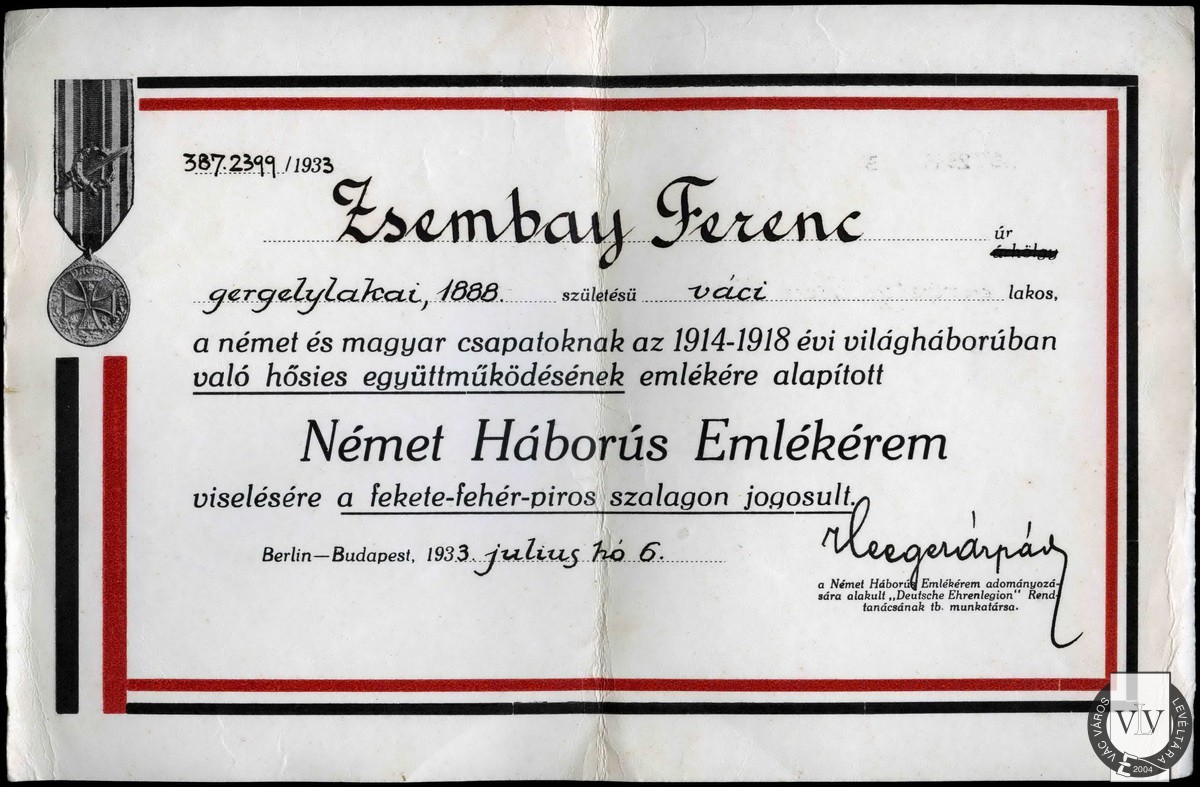 387.2399/1933
Zsembay Ferenc úr
á hölgy
gergelylakai, 1888. születésü váci lakos,
a német és magyar csapatoknak az 1914-1918 évi világháborúban
való hősies együttműködésének emlékére alapított
Német Háborús Emlékérem
viselésére a fekete-fehér-piros szalagon jogosult.
Berlin—Budapest, 1933. julius hó 6.
a Német Háborús Emlékérem adományozá-
sára alakult „Deutsche Ehrenlegion" Rend-
tanácsának tb. munkatársa.
VÁC VÁROS LEVÉLTÁRA
VLV
2004